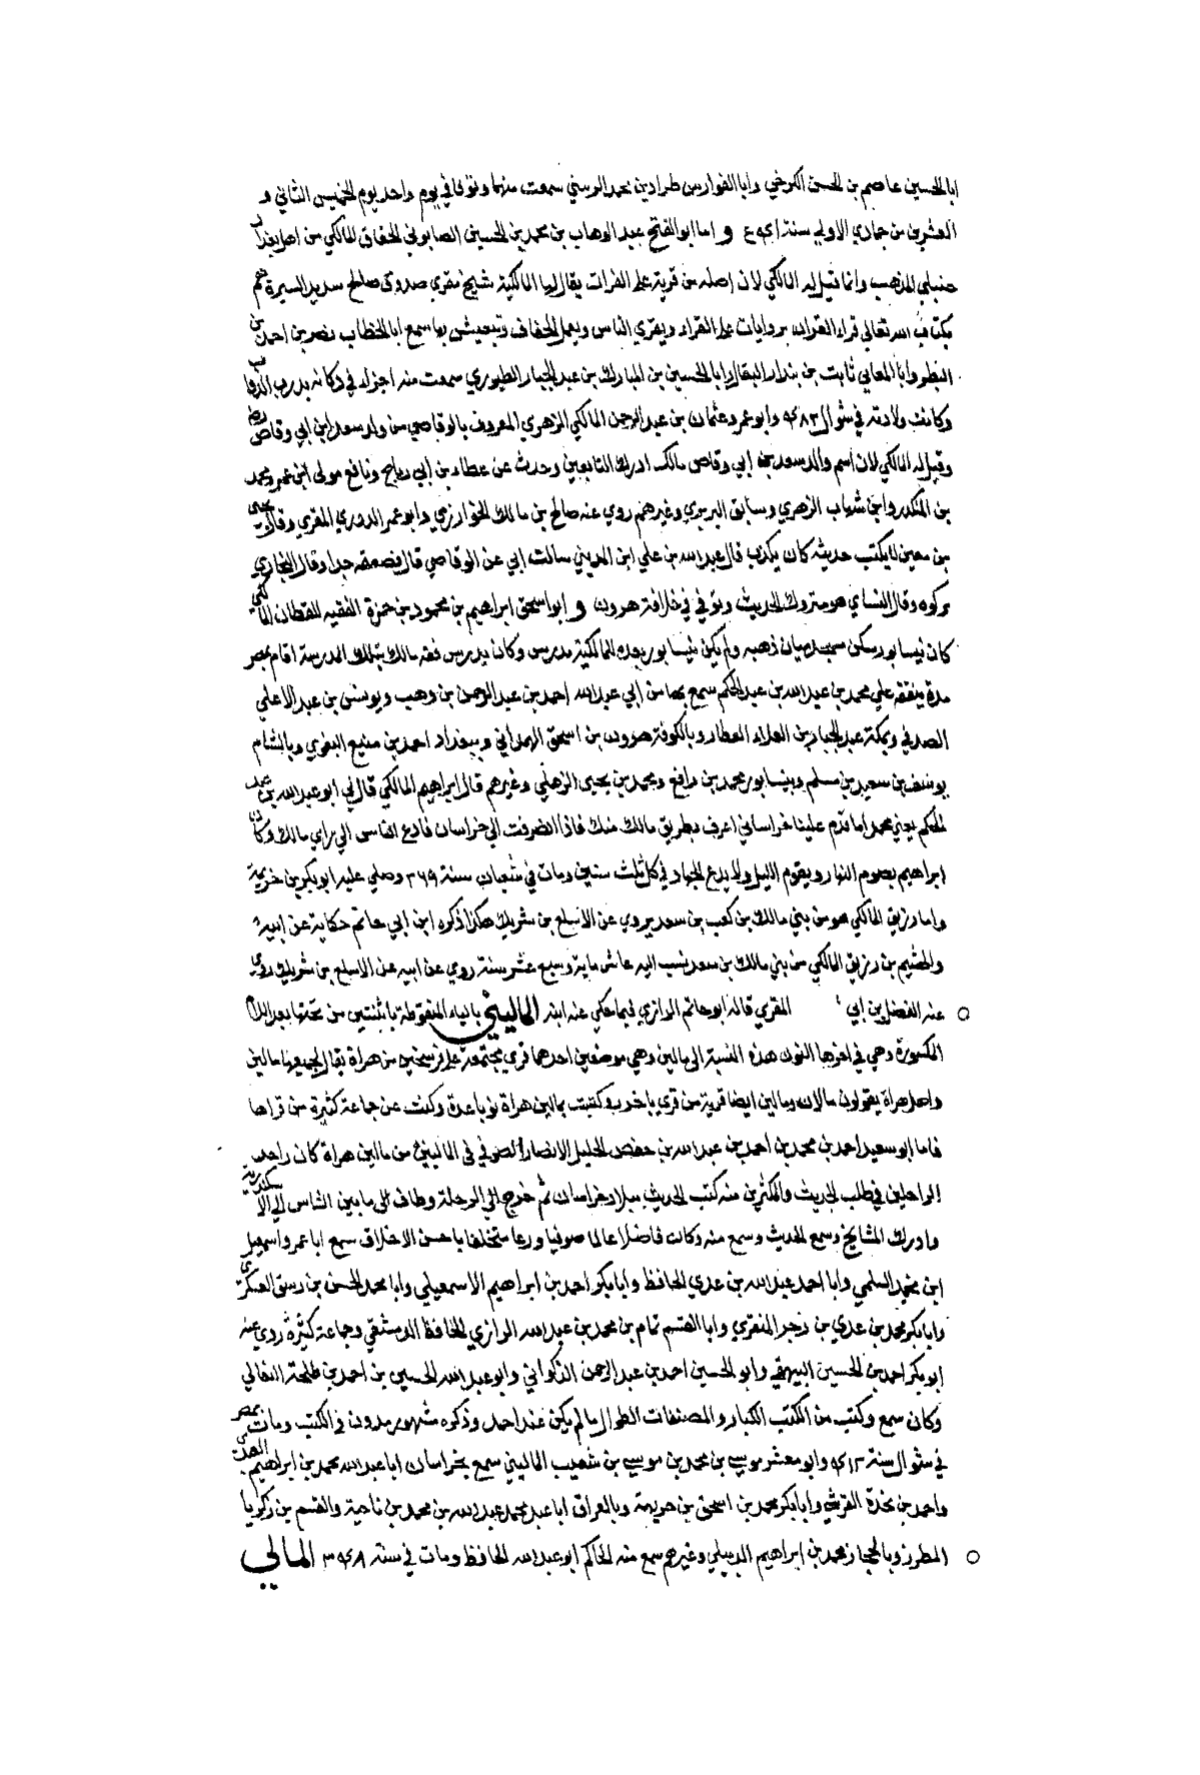 ابا الحسين عاصم بن الحسن الكرخي وابا الفوارس طراد بن محمد الزينبي سمعت منهما وتوفي في يوم واحد يوم الخميس الثاني و
العشرين من جمادي الاولي سنة و اما ابو الفتح عبد الوهاب بن محمد بن الحسين الصابوني الخفاف المالكي من اهل بغداد
حنبلي المذهب وانما قيل له المالكي لان اصله من قرية علي الفرات يقال لها المالكية شيخ مقري صدوق صالح سديد السيرة
بكتاب الله تعالي قرا القران بروايات علي القراء ويقري الناس ويعمل الخفاف ويتعيش بها سمع ابا الخطاب نصر بن احمد بن
البطر وابا المعالي ثابت بن بندار البقال وابا الحسين بن المبارك بن عبد الجبار الطيوري سمعت منه اجزاء في دكانه بدرب الدواب
وكانت ولادته في شوال وابو عمرو عثمان بن عبد الرحمن المالكي الزهري المعروف بالوقاصي من ولد سعد ابن ابي وقاص رض
وقيل له المالكي لان اسم والد سعد بن ابي وقاص مالك ادرك التابعين وحدث عن عطاء بن ابي رباح ونافع مولى ابن عمر ومحمد
بن المنكدر وابن شهاب الزهري وسابق البربري وغيرهم روي عنه صالح بن مالك الخوارزمي وابو عمر الدوري المقري وقال يحيى
بن معين لا يكتب حديثه كان يكذب قال عبد الله بن علي ابن المديني سالت ابي عن الوقاصي قال فضعفه جدا وقال البخاري
تركوه وقال النساي هو متروك الحديث وتوفي في خلافة هرون و ابو اسحق ابراهيم بن محمود بن حمزة الفقيه القطان المالكي
كان نيسابور سكن ذهبه ولم يكن نيسابور بعده للمالكية مدرس وكان يدرس فقه مالك بتلك المدرسة اقام بمصر
مدة يتفقه علي محمد بن عبد الله بن عبد الحكم سمع بها من ابي عبد الله احمد بن عبد الرحمن بن وهب ويونس بن عبد الاعلي
الصدفي وبمكة عبد الجبار بن العلاء العطار وبالكوفة هرون بن اسحق الهمداني وببغداد احمد بن منيع البغوي وبالشام
يوسف بن سعيد بن مسلم وبنيسابور محمد بن رافع ومحمد بن يحيى الزهلي وغيرهم قال ابراهيم المالكي قال لي ابو عبد الله بن عبد
الحكم يعني محمدا ما قدم علينا خراساني اعرف بطريق مالك منك فاذا انصرفت الي خراسان فادع الناس الي راي مالك وكان
ابراهيم يصوم النهار ويقوم الليل ولا يدع الجهاد في كل ثلث سنين ومات في شعبان سنة وصلي عليه ابو بكر بن خزيمة
واما رزيق المالكي هو من بني مالك بن كعب بن سعد يروي عن الاسلع بن شريك هكذا ذكره ابن ابي حاتم حكاية عن ابيه
والهيثم بن رزيق المالكي من بني مالك بن سعد نسب اليه عاش ماية وسبع عشر سنة روي عن ابيه عن الاسلع بن شريك روي
عنه الفضل بن ابي المقري قاله ابو حاتم الرازي فيما حكي عنه ابنه الماليني بالياء المنقوطة باثنتين من تحتها بعد اللام
المكسورة وهي في اخرها النون هذه النسبة الى مالين وهي موضعين احدهما قري مجتمعة علي فرسخين من هراة يقال لجميعها مالين
واهل هراة يقولون مالان ومالين ايضا قرية من قري باخرز وكتبت بمالين هراة نوبا عدة وكتبت عن جماعة كثيرة من قراها
فاما ابو سعيد احمد بن محمد بن احمد بن عبد الله بن حفص الخليل الانصار الصوفي في الماليني من مالين هراة كان راحد
الراحلين في طلب الحديث والمكثرين منه كتب الحديث ببلاد خراسان ثم خرج الي الرحلة وطاف الي ما بين الشاس الي الاسكندرية
وادرك المشايخ وسمع الحديث وسمع منه وكان فاضلا عالما صوفيا ورعا متخلقا باحسن الاخلاق سمع ابا عمرو اسمعيل
ابن نجيد السلمي وابا احمد عبد الله بن عدي الحافظ وابا بكر احمد بن ابراهيم الاسمعيلي وابا محمد الحسن بن رشيق العسكري
وابا بكر محمد بن عدي بن زحر المنقري وابا القسم تمام بن محمد بن عبد الله الرازي الحافظ الدمشقي وجماعة كثيرة روي عنه
ابو بكر احمد بن الحسين البيهقي وابو الحسين احمد بن عبد الرحمن الذكواني وابو عبد الله الحسين بن احمد بن طلحة النعالي
وكان سمع وكتب من الكتب الكبار والمصنفات الطوال ما لم يكن عند احد وذكره مشهور مدون في الكتب ومات بمصر
في شوال سنة وابو معشر موسى بن محمد بن موسي بن شعيب الماليني سمع بخراسان ابا عبد الله محمد بن ابراهيم
واحمد بن نجدة القرشي وابا بكر محمد بن اسحق بن خزيمة وبالعراق ابا عبد محمد عبد الله بن محمد بن ناجية والقسم بن زكريا
المطرز وبالحجاز محمد بن ابراهيم الدبيلي وغيرهم سمع منه الحاكم ابو عبد الله الحافظ ومات في سنة المالي